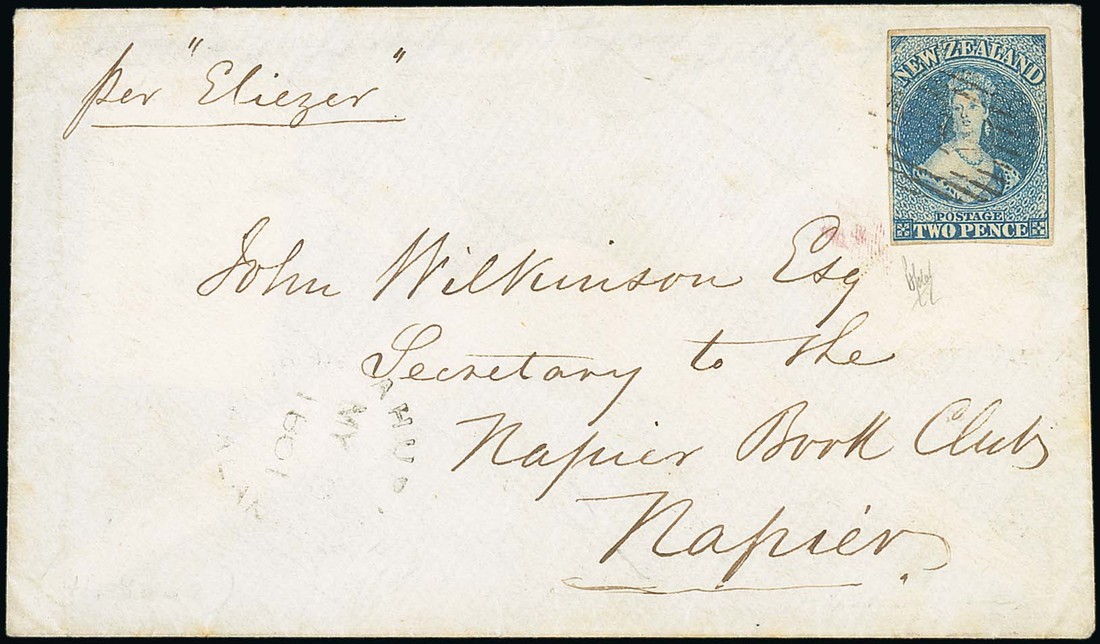 per "Eliezer"
NEW ZEALAND
POSTAGE
TWO PENCE
John Wilkinson Esq
Secretary to the
Napier Book Club
Napier